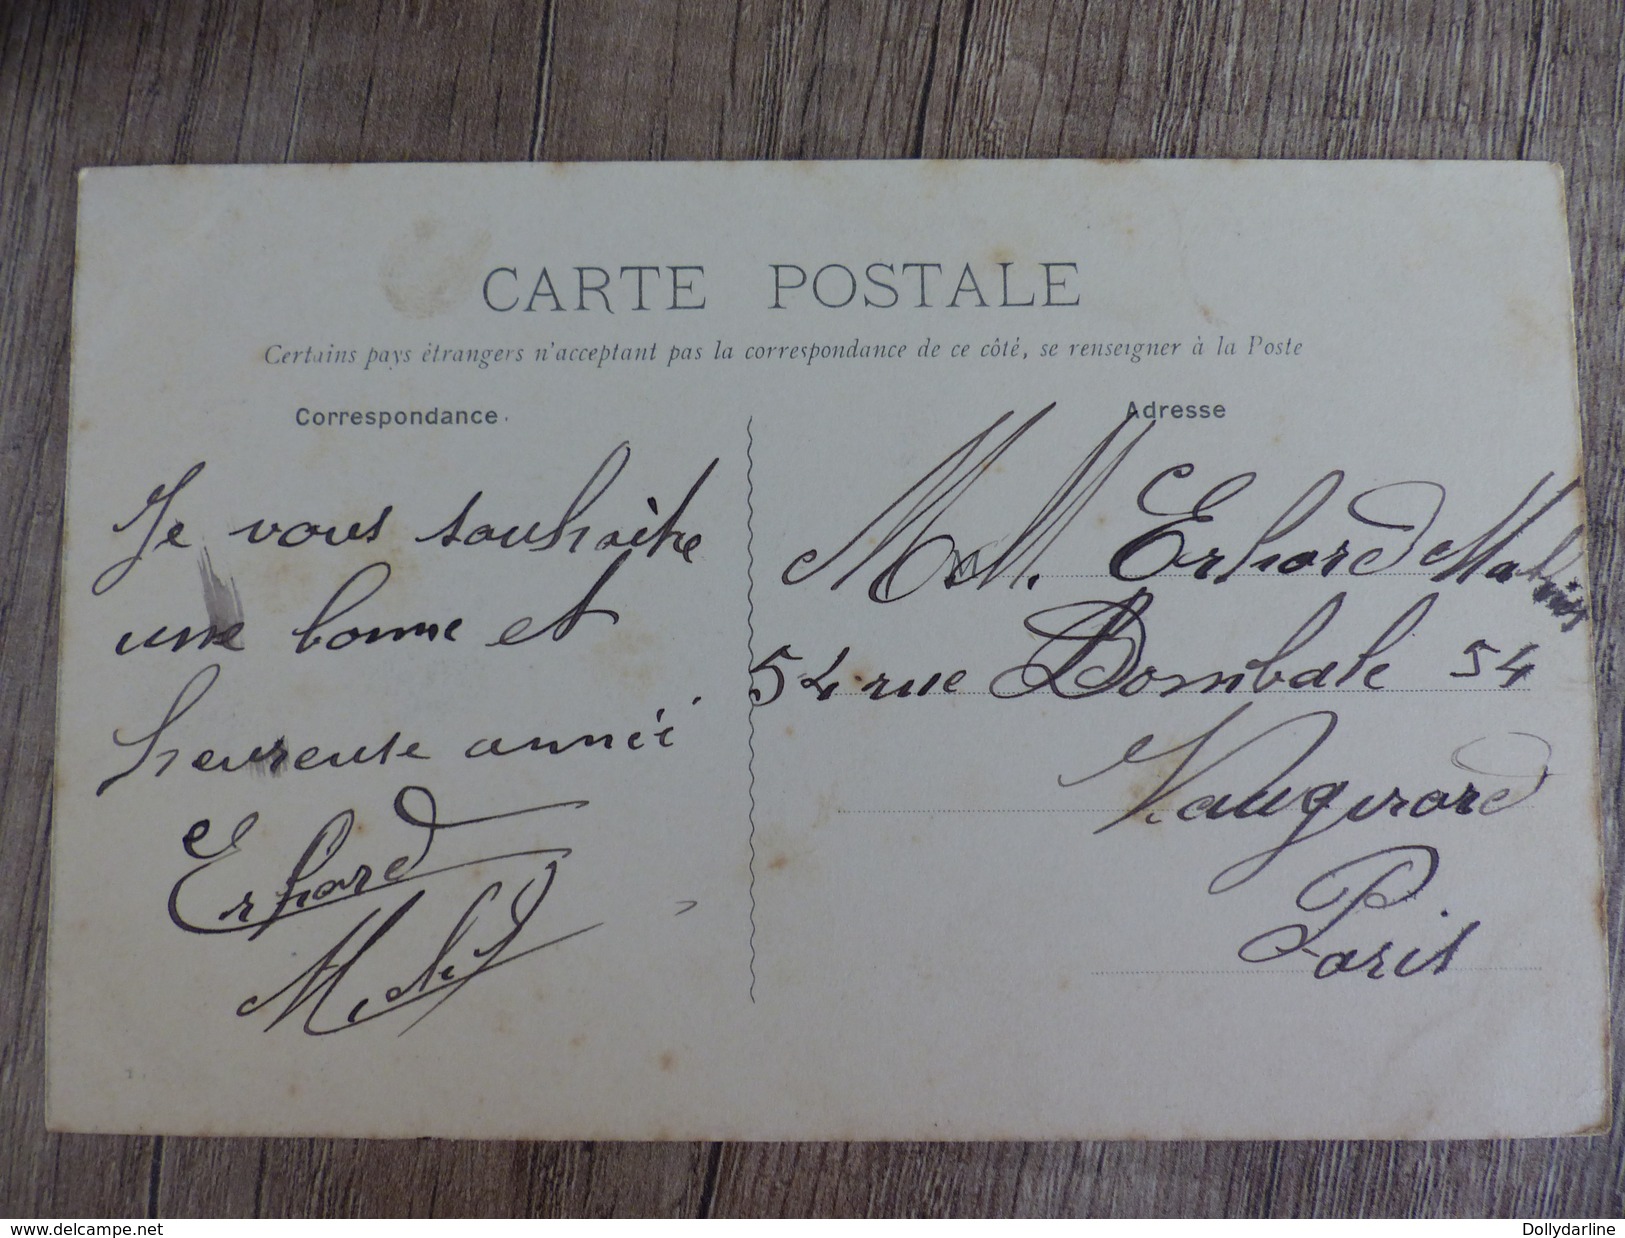 CARTE POSTALE
Certains pays étrangers n'acceptant pas la correspondance de ce côté, se renseigner à la Poste
Correspondance.
Je vous souhaite
une bonne et
heureuse année
Erhard
Adresse
Erhard
54 rue Dombale 54
Vaugirard
Paris
www.delcampe.net
Dollydarline